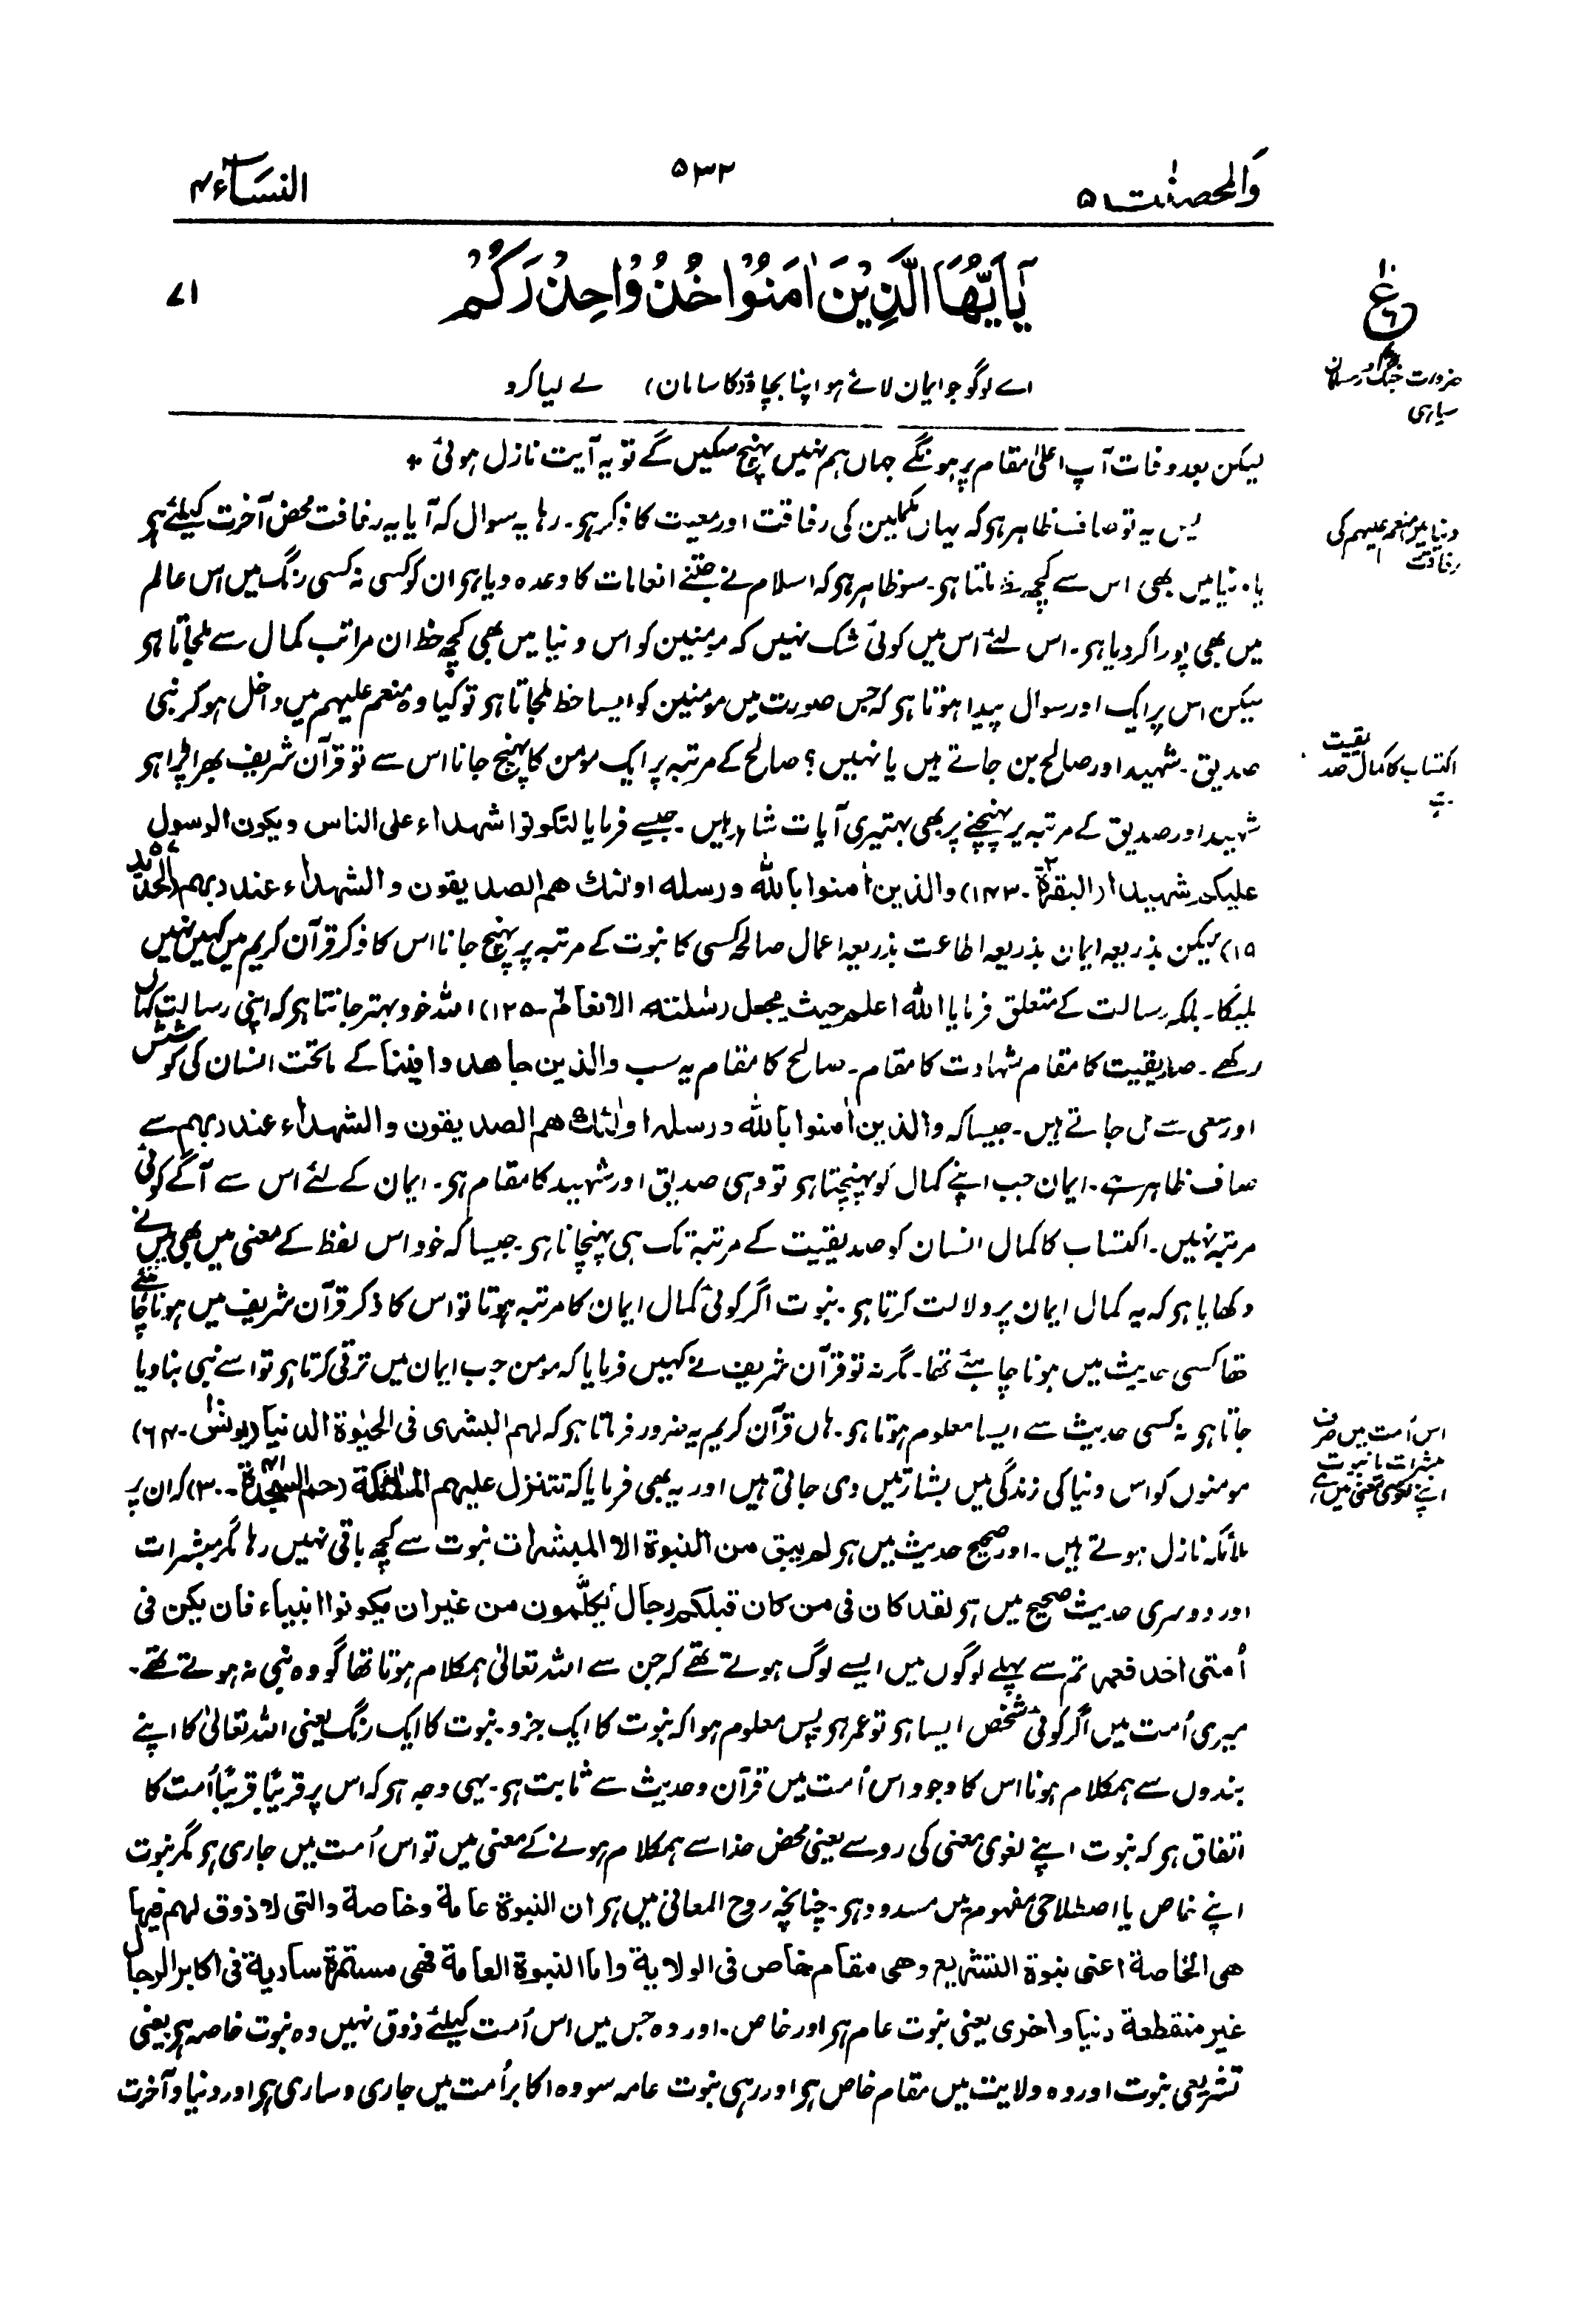 والمحصنٰت ۵
۵۳۲
النسآء ۴
یٰٓاَیُّهَا الَّذِیْنَ اٰمَنُوْا خُذُوْا حِذْرَكُمْ
۷۱
اے لوگو جو ایمان لائے ہو اپنا بچاؤ (کا سامان) لے لیا کرو
ضرورت جنگ اور سامان
لیکن بعد وفات آپ اعلیٰ مقام پر ہونگے جہاں ہم نہیں پہنچ سکیں گے تو یہ آیت نازل ہوئی ٭
دنیا میں منعم علیہم کی
رفاقت
پس یہ تو صاف ظاہر ہو کہ یہاں مکملین کی رفاقت اور معیت کا ذکر ہو۔ رہا یہ سوال کہ آیا یہ رفاقت محض آخرت کیلئے ہو
یا دنیا میں بھی اس سے کچھ حظ ملتا ہو۔ سو ظاہر ہو کہ اسلام نے جتنے انعامات کا وعدہ دیا ہو ان کو کسی نہ کسی رنگ میں اس عالم
میں بھی پورا کر دیا ہو۔ اس لئے اس میں کوئی شک نہیں کہ مومنین کو اس دنیا میں بھی کچھ حظ ان مراتب کمال سے ملجاتا ہو
لیکن اس پر ایک اور سوال پیدا ہوتا ہو کہ جس صورت میں مومنین کو ایسا حظ ملجاتا ہو تو کیا وہ منعم علیہم میں داخل ہو کر نبی
اکتساب کا کمال صدیقیت
ہے
صدیق۔ شہید اور صالح بن جاتے ہیں یا نہیں؟ صالح کے مرتبہ پر ایک مومن کا پہنچ جانا اس سے تو قرآن شریف بھرا پڑا ہو
شہید اور صدیق کے مرتبہ پر پہنچنے پر بھی بہتیری آیات شاہد ہیں۔ جیسے فرمایا لتکونوا شهداء علی الناس ویکون الرسول
علیکم شهیدا (البقرة ۲۔۱۴۳) والذین اٰمنوا بالله ورسله اولٰئك هم الصدیقون والشهداء عند ربهم (الحدید ۵۷۔
۱۹) لیکن بذریعہ ایمان بذریعہ اطاعت بذریعہ اعمال صالحہ کسی کا نبوت کے مرتبہ پر پہنچ جانا اس کا ذکر قرآن کریم میں کہیں نہیں
ملیگا۔ بلکہ رسالت کے متعلق فرمایا الله اعلم حیث یجعل رسٰلته الانعام ۶۔۱۲۵) اللہ خود بہتر جانتا ہو کہ اپنی رسالت کہاں
رکھے۔ صدیقیت کا مقام شہادت کا مقام۔ صالح کا مقام یہ سب والذین جاهدوا فینا کے ماتحت انسان کی کوشش
اور سعی سے مل جاتے ہیں۔ جیسا کہ والذین اٰمنوا بالله ورسله اولٰئك هم الصدیقون والشهداء عند ربهم سے
صاف ظاہر ہے۔ ایمان جب اپنے کمال کو پہنچتا ہو تو وہی صدیق اور شہید کا مقام ہو۔ ایمان کے لئے اس سے آگے کوئی
مرتبہ نہیں۔ اکتساب کا کمال انسان کو صدیقیت کے مرتبہ تک ہی پہنچانا ہو۔ جیسا کہ خود اس لفظ کے معنی میں بھی میں نے
دکھایا ہو کہ یہ کمال ایمان پر دلالت کرتا ہو۔ نبوت اگر کوئی کمال ایمان کا مرتبہ ہوتا تو اس کا ذکر قرآن شریف میں ہونا چاہئے
تھا کسی حدیث میں ہونا چاہئے تھا۔ مگر نہ تو قرآن شریف نے کہیں فرمایا کہ مومن جب ایمان میں ترقی کرتا ہو تو اسے نبی بنا دیا
اس اُمت میں صرف
مبشرات یا نبوت
اپنے لغوی معنی میں ہے
جاتا ہو نہ کسی حدیث سے ایسا معلوم ہوتا ہو۔ ہاں قرآن کریم یہ ضرور فرماتا ہو کہ لهم البشری فی الحیٰوة الدنیا (یونس ۱۰۔۶۴)
مومنوں کو اس دنیا کی زندگی میں بشارتیں دی جاتی ہیں اور یہ بھی فرمایا کہ تتنزل علیهم الملٰئکة (حم السجدة ۴۱۔۳۰) کہ ان پر
ملائکہ نازل ہوتے ہیں۔ اور صحیح حدیث میں ہو لم یبق من النبوة الا المبشرات نبوت سے کچھ باقی نہیں رہا مگر مبشرات
اور دوسری حدیث صحیح میں ہو لقد کان فی من کان قبلکم رجال یُکلَّمون من غیر ان یکونوا انبیاء فان یکن فی
اُمتی احد فعمر تم سے پہلے لوگوں میں ایسے لوگ ہوتے تھے کہ جن سے اللہ تعالیٰ ہمکلام ہوتا تھا گو وہ نبی نہ ہوتے تھے۔
میری اُمت میں اگر کوئی شخص ایسا ہو تو عمر ہو پس معلوم ہوا کہ نبوت کا ایک جزو۔ نبوت کا ایک رنگ یعنی اللہ تعالیٰ کا اپنے
بندوں سے ہمکلام ہونا اس کا وجود اس اُمت میں قرآن وحدیث سے ثابت ہو۔ یہی وجہ ہو کہ اس پر قریباً قریباً اُمت کا
اتفاق ہو کہ نبوت اپنے لغوی معنی کی رو سے یعنی محض خدا سے ہمکلام ہونے کے معنی میں تو اس اُمت میں جاری ہو مگر نبوت
اپنے خاص یا اصطلاحی مفہوم میں مسدود ہو۔ چنانچہ روح المعانی میں ہو ان النبوة عامة وخاصة والتی لا ذوق لهم فیها
هی الخاصة اعنی نبوة التشریع وهی مقام خاص فی الولایة واما النبوة العامة فهی مستمرة ساریة فی اکابر الرجال
غیر منقطعة دنیا واخری یعنی نبوت عام ہو اور خاص۔ اور وہ جس میں اس اُمت کیلئے ذوق نہیں وہ نبوت خاصہ ہو یعنی
تشریعی نبوت اور وہ ولایت میں مقام خاص ہو اور رہی نبوت عامہ سو وہ اکابر اُمت میں جاری وساری ہو اور دنیا و آخرت